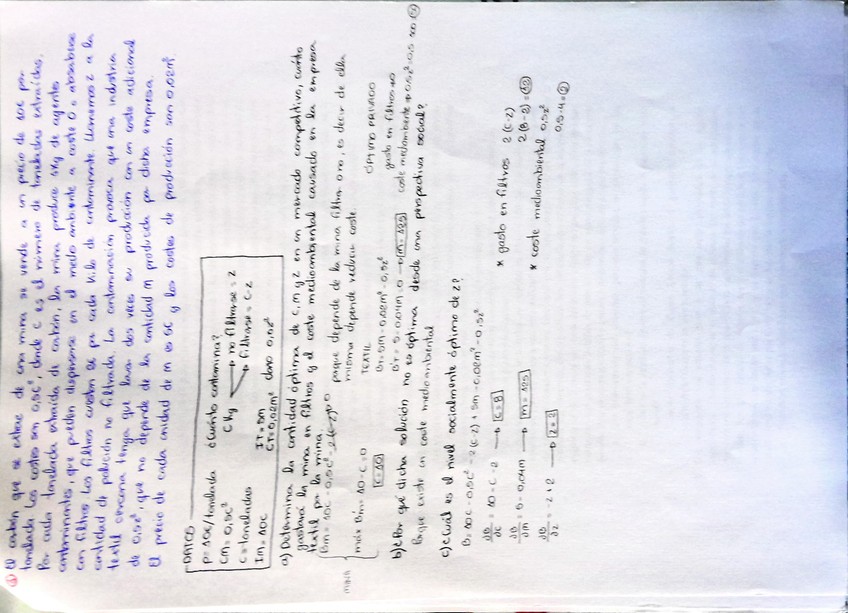 ① El carbón que se extrae de una mina se vende a un precio de 10€ por
tonelada. Los costes son 0,5C², donde C es el número de toneladas extraídas.
Por cada tonelada extraída de carbón, la mina produce 1Kg de agentes
contaminantes, que pueden dispersarse en el medio ambiente a coste 0 o absorberse
con filtros. Los filtros cuestan 2€ por cada kilo de contaminante. Llamemos z a la
cantidad de polución no filtrada. La contaminación provoca que una industria
textil cercana tenga que lavar dos veces su producción con un coste adicional
de 0,5z², que no depende de la cantidad m producida por dicha empresa.
El precio de cada unidad de m es 5€ y los costes de producción son 0,02m².
DATOS
p = 10€/tonelada
Cm = 0,5C²
C = toneladas
Im = 10C
¿Cuánto contamina?
C Kg → no filtrarse = z
→ filtrarse = C-z
IT = 5m
CT = 0,02m² daño 0,5z²
a) Determina la cantidad óptima de C, m y z en un mercado competitivo, cuánto
gastará la mina en filtros y el coste medioambiental causado en la empresa
textil por la mina.
Bm = 10C - 0,5C²
porque depende de la mina filtra o no, es decir de ella
misma depende reducir coste.
máx Bm = 10 - C = 0
C = 10
TEXTIL
BT = 5m - 0,02m² - 0,5z²
B'T = 5 - 0,04m = 0 → m = 125
ÓPTIMO PRIVADO
gasto en filtros → 0
coste medioambiente → 0,5z²
b) ¿Por qué dicha solución no es óptima desde una perspectiva social?
Porque existe un coste medioambiental
c) ¿Cuál es el nivel socialmente óptimo de z?
B = 10C - 0,5C² - 2(C-z) + 5m - 0,02m² - 0,5z²
∂B/∂C = 10 - C - 2 → C = 8
∂B/∂m = 5 - 0,04m → m = 125
∂B/∂z → z = 2
* gasto en filtros 2(C-z)
2(8-2) = 12
* coste medioambiental 0,5z²
0,5·4 = 2